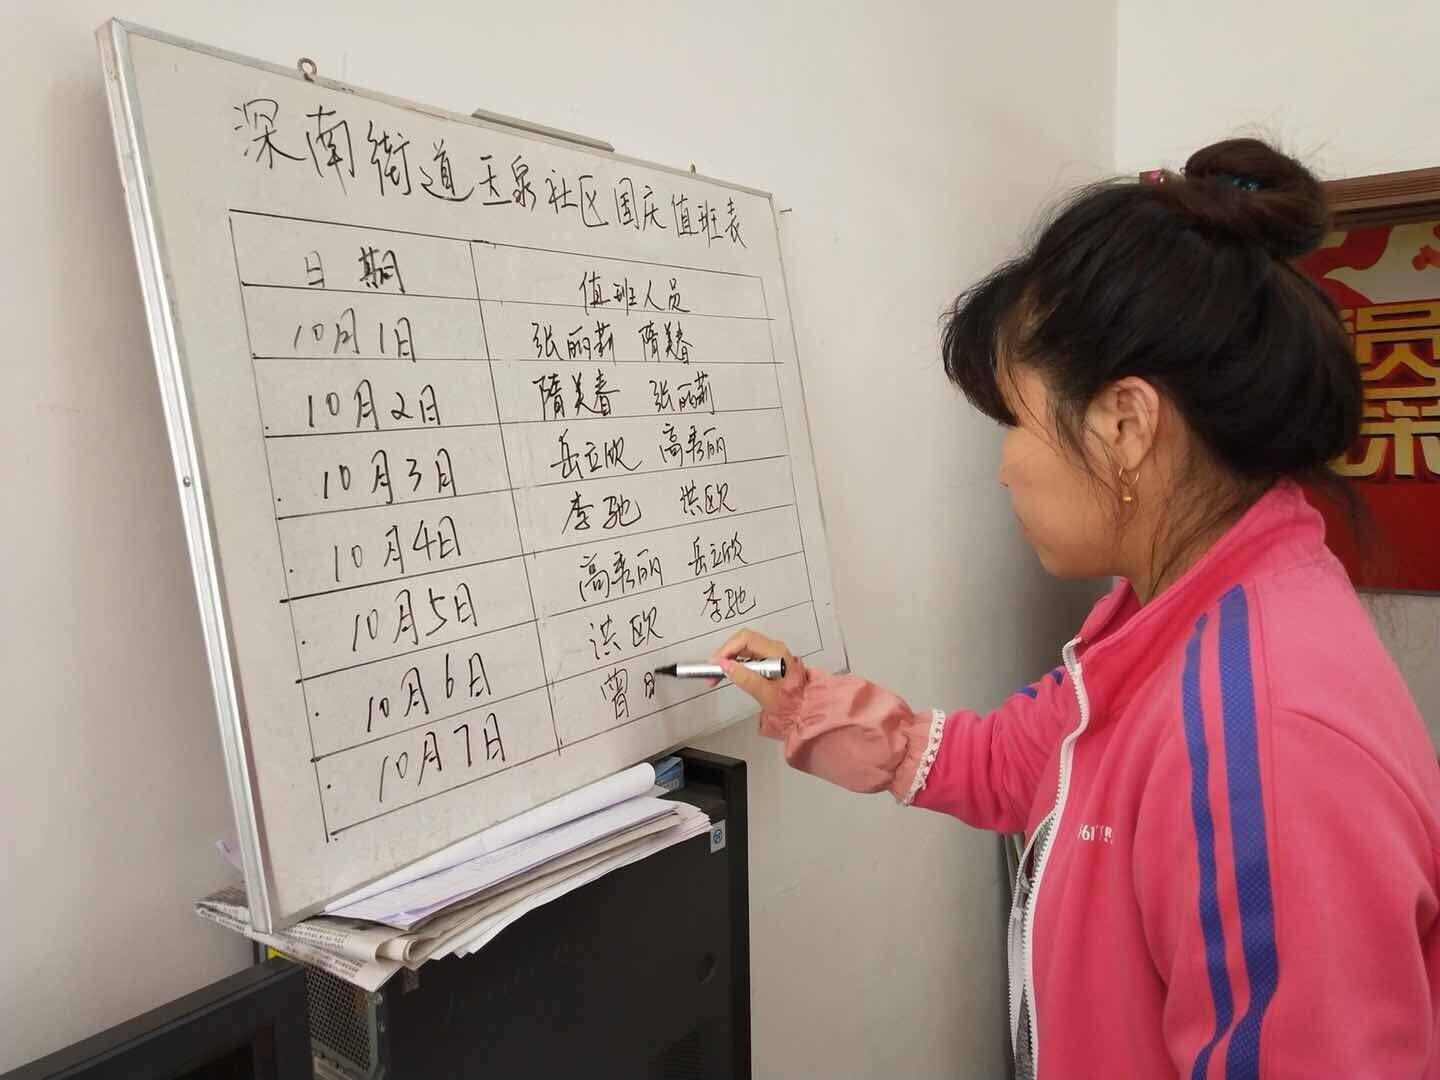 深南街道玉泉社区国庆值班表
日期 值班人员
10月1日 张丽莉 隋美春
10月2日 隋美春 张丽莉
10月3日 岳立欣 高秀丽
10月4日 李驰 洪欧
10月5日 高秀丽 岳立欣
10月6日 洪欧 李驰
10月7日 曾
员